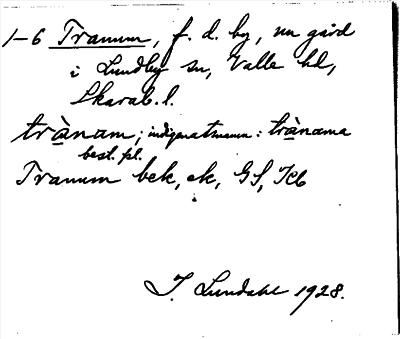 1–6 Tranum, f. d. by, nu gård
i Lundby sn, Valle hd,
Skarab. l.
trànam; indigenatsnamn: trànama
best. pl.
Tranum bek, ek, GS, Jeb
I. Lundahl 1928.